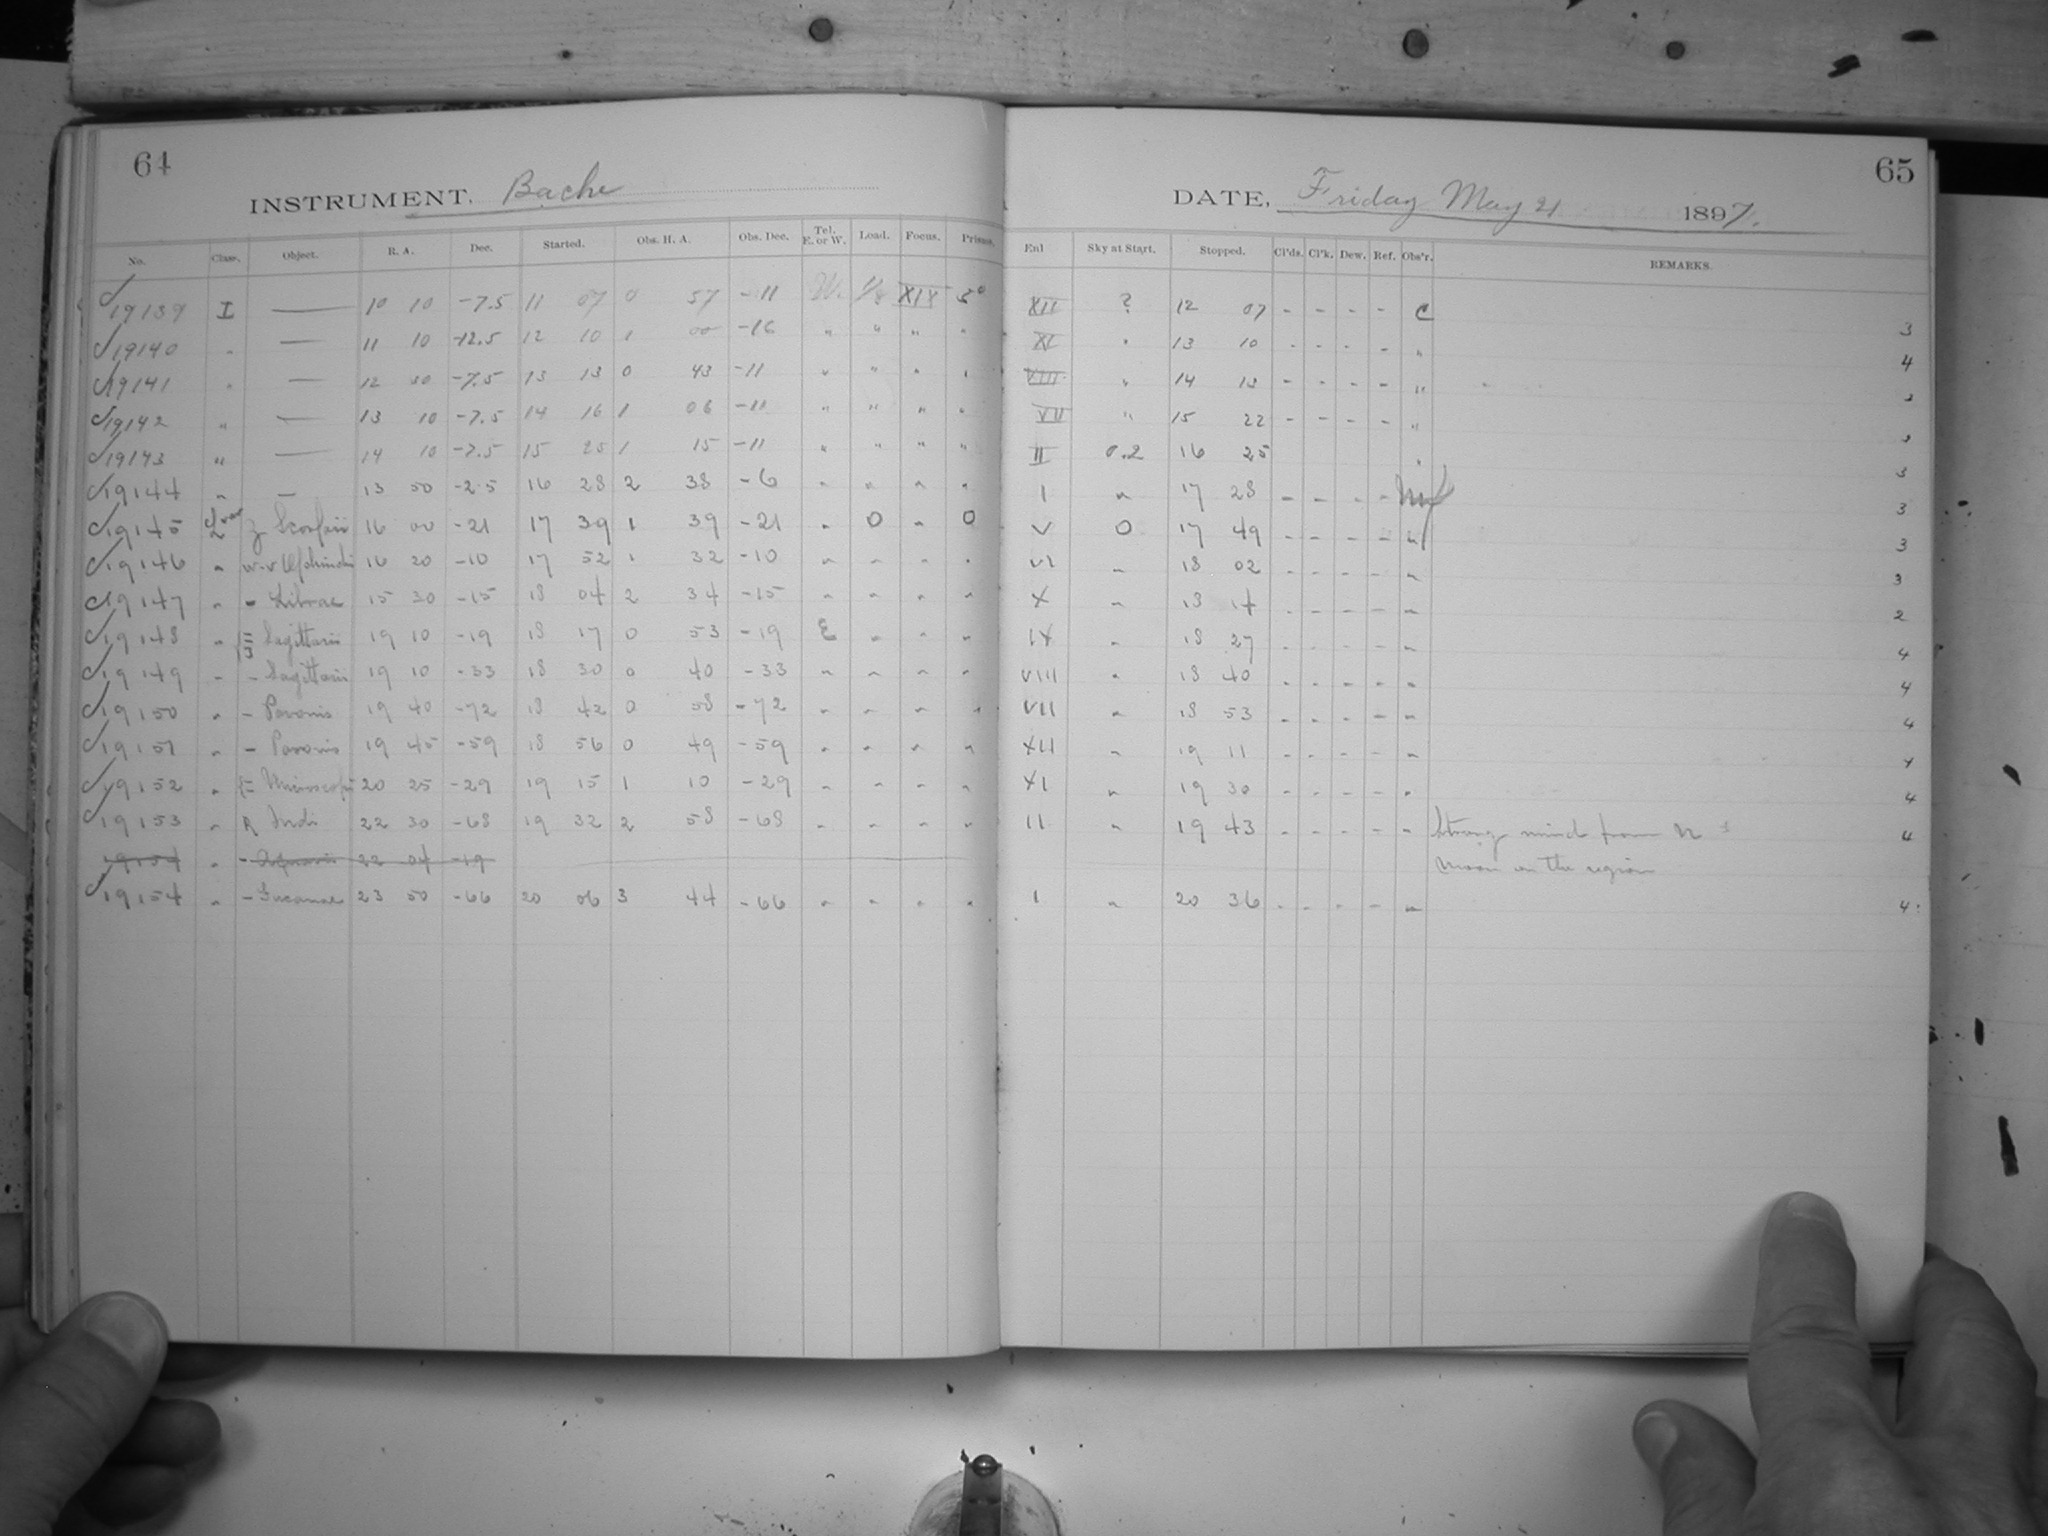 64
INSTRUMENT, Bache
No. Class. Object. R. A. Dec. Started. Obs. H. A. Obs. Dec. Tel. E. or W. Load. Focus. Prism.
19139 I — 10 10 -7.5 11 07 0 57 -11 W. XIX 5°
19140 " — 11 10 -12.5 12 10 1 00 -16 " " " "
19141 " — 12 30 -7.5 13 13 0 43 -11 " " " "
19142 " — 13 10 -7.5 14 16 1 06 -11 " " " "
19143 " — 14 10 -7.5 15 25 1 15 -11 " " " "
19144 " — 13 50 -2.5 16 28 2 38 -6 " " " "
19145 Z Scorpii 16 00 -21 17 39 1 39 -21 " 0 " 0
19146 " W.V Ophiuchi 16 20 -10 17 52 1 32 -10 " " " "
19147 " - Librae 15 30 -15 18 04 2 34 -15 " " " "
19148 " Sagittarii 19 10 -19 18 17 0 53 -19 E " " "
19149 " - Sagittarii 19 10 -33 18 30 0 40 -33 " " " "
19150 " - Pavonis 19 40 -72 18 42 0 58 -72 " " " "
19151 " - Pavonis 19 45 -59 18 56 0 49 -59 " " " "
19152 " Microscopii 20 25 -29 19 15 1 10 -29 " " " "
19153 " R Indi 22 30 -68 19 32 2 58 -68 " " " "
19154 " - Aquarii 22 04 -19
19154 " - Tucanae 23 50 -66 20 06 3 44 -66 " " " "
65
DATE, Friday May 21 1897.
Enl Sky at Start. Stopped. Cl'ds. Cl'k. Dew. Ref. Obs'r. REMARKS.
XII ? 12 07 - - - - C 3
XI " 13 10 - - - - " 4
XIII " 14 13 - - - - "
VII " 15 22 - - - - "
II 0.2 16 25 3
I " 17 28 - - - - 3
V 0 17 49 - - - - " 3
VI " 18 02 - - - - " 3
X " 18 14 - - - - " 2
IX " 18 27 - - - - " 4
VIII " 18 40 - - - - " 4
VII " 18 53 - - - - " 4
XII " 19 11 - - - - "
XI " 19 30 - - - - " 4
II " 19 43 - - - - " Strong wind from N 4
moon in the region
I " 20 36 - - - - " 4